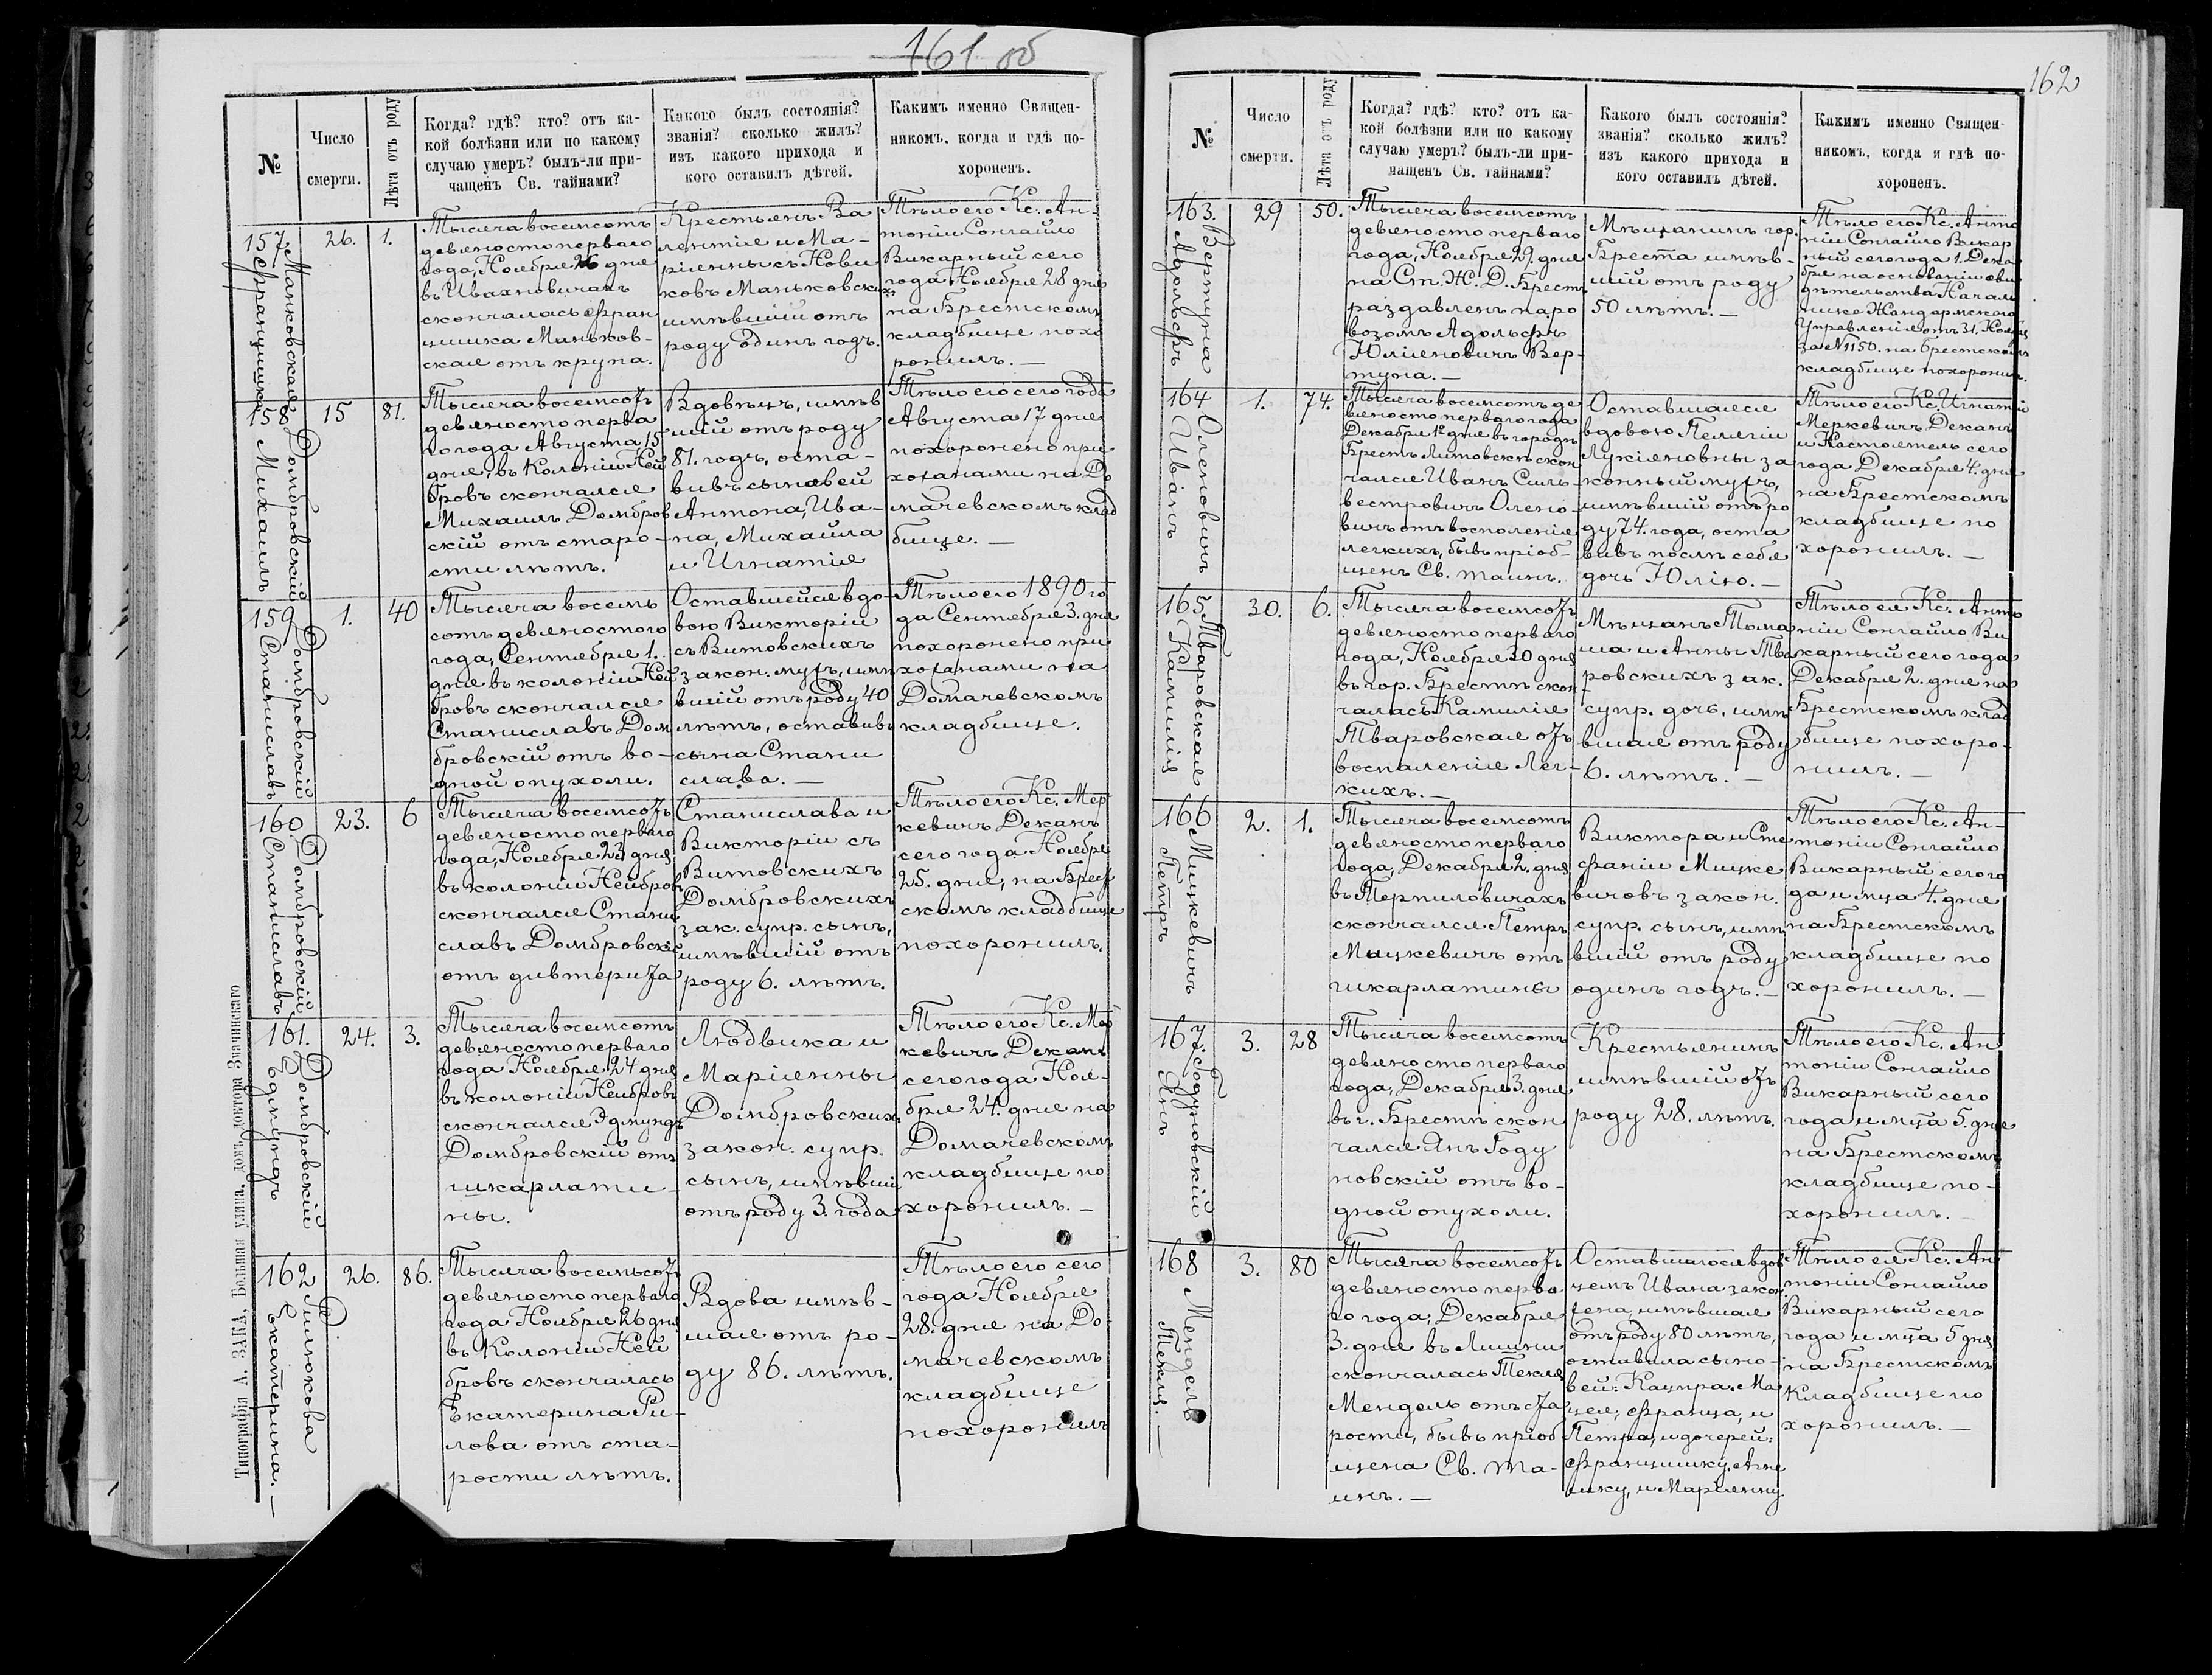 161 об
№
Число
смерти.
Лѣта отъ роду
Когда? гдѣ? кто? отъ ка-
кой болѣзни или по какому
случаю умеръ? былъ-ли при-
чащенъ Св. тайнами?
Какого былъ состоянія?
званія? сколько жилъ?
изъ какого прихода и
кого оставилъ дѣтей.
Какимъ именно Священ-
никомъ, когда и гдѣ по-
хороненъ.
157
Маньковская
Францишка
26.
1.
Тысяча восемсотъ
девяносто перваго
года, Ноября 26 дня
въ Ивахновичахъ
скончалась Фран
цишка Маньков-
ская отъ крупа.
Крестьянъ Ва
лентія и Ма-
ріянны съ Нови
ковъ Маньковскихъ
имѣвшій отъ
роду одинъ годъ.
Тѣло его Кс. Ан-
тоній Сонгайло
Викарный сего
года Ноября 28 дня
на Брестскомъ
кладбище похо
ронилъ. —
158
Домбровскій
Михаилъ
15
81.
Тысяча восемсотъ
девяносто перва
го года Августа 15
дня, въ Колоніи Ней
бровъ скончался
Михаилъ Домбров
скій отъ старо-
сти лѣтъ.
Вдовецъ, имѣв
шій отъ роду
81. годъ, оста-
вивъ сыновей
Антона, Ива-
на, Михаила
и Игнатія
Тѣло его сего года
Августа 17 дня
похоронено при
хожанами на До
мачевскомъ клад
бище. —
159
Домбровскій
Станиславъ
1.
40
Тысяча восемь
сотъ девяностого
года, Сентября 1.
дня въ колоніи Ней
бровъ скончался
Станиславъ Дом
бровскій отъ во-
дной опухоли.
Оставшейся вдо-
вою Викторіи
съ Витовскихъ
закон. мужъ, имѣ
вшій отъ роду 40
лѣтъ, оставивъ
сына Стани
слава. —
Тѣло его 1890 го
да Сентября 3. дня
похоронено при
хожанами на
Домачевскомъ
кладбище.
160
Домбровскій
Станиславъ
23.
6
Тысяча восемсотъ
девяносто перваго
года, Ноября 23 дня
въ колоніи Нейбровъ
скончался Стани
славъ Домбровскій
отъ дивтерита
Станислава и
Викторіи съ
Витовскихъ
Домбровскихъ
зак. супр. сынъ,
имѣвшій отъ
роду 6. лѣтъ.
Тѣло его Кс. Мер
кевичъ Деканъ
сего года Ноября
25. дня, на Брест
скомъ кладбище
похоронилъ.
161.
Домбровскій
Едмундъ
24.
3.
Тысяча восемсотъ
девяносто перваго
года Ноября 24 дня
въ колоніи Нейбровъ
скончался Эдмундъ
Домбровскій отъ
шкарлати-
ны.
Людвика и
Маріянны
Домбровскихъ
закон. супр.
сынъ, имѣвшій
отъ роду 3. года
Тѣло его Кс. Мер
кевичъ Деканъ
сего года Ноя-
бря 24. дня на
Домачевскомъ
кладбище по
хоронилъ. —
162
Рилюкова
Екатерина. —
26.
86.
Тысяча восемьсотъ
девяносто перваго
года Ноября 26 дня
въ Колоніи Ней
бровъ скончалась
Екатерина Ри-
лова отъ ста-
рости лѣтъ.
Вдова имѣв-
шая отъ ро-
ду 86. лѣтъ.
Тѣло его сего
года Ноября
28. дня на До-
мачевскомъ
кладбище
похоронилъ
Типографія А. ЗАКА, Большая улица, домъ доктора Значинскаго
162
№
Число
смерти.
Лѣта отъ роду
Когда? гдѣ? кто? отъ ка-
кой болѣзни или по какому
случаю умеръ? былъ-ли при-
чащенъ Св. тайнами?
Какого былъ состоянія?
званія? сколько жилъ?
изъ какого прихода и
кого оставилъ дѣтей.
Какимъ именно Священ-
никомъ, когда и гдѣ по-
хороненъ.
163.
Вертуна
Адольфъ
29
50.
Тысяча восемсотъ
девяносто перваго
года, Ноября 29. дня
на Ст. Ж. Д. Брестъ
раздавленъ паро
возомъ Адольфъ
Юліяновичъ Вер-
туна. —
Мѣщанинъ гор.
Бреста имѣв-
шій отъ роду
50 лѣтъ. —
Тѣло его Кс. Анто
ній Сонгайло Викар
ный сего года 1. Дека
бря на основаніи сви
дѣтельства Началь
ника Жандармскаго
Управленія отъ 31. Ноября
за № 1150. на Брестскомъ
кладбище похоронилъ.
164
Оленовичъ
Иванъ
1.
74.
Тысяча восемсотъ де
вяносто перваго года
Декабря 1 дня въ городѣ
Брестъ Литовскъ скон
чался Иванъ Силь-
вестровичъ Олено-
вичъ отъ воспаленія
легкихъ, бывъ пріоб-
щенъ Св. таинъ.
Оставшаяся
вдовою Пелягіи
Лукіяновны за
конный мужъ,
имѣвшій отъ ро
ду 74. года, оста
вивъ послѣ себя
дочь Юлію. —
Тѣло его Кс. Игнатій
Меркевичъ Деканъ
и Настоятель сего
года Декабря 4. дня
на Брестскомъ
кладбище по
хоронилъ. —
165
Тваровская
Камилія
30.
6.
Тысяча восемсотъ
девяносто перваго
года, Ноября 30 дня
въ гор. Брестѣ скон
чалась Камилія
Тваровская отъ
воспаленія Лег-
кихъ. —
Мѣщанъ Тома
ша и Анны Тва
ровскихъ зак.
супр. дочь, имѣ
вшая отъ роду
6. лѣтъ. —
Тѣло ея Кс. Анто
ній Сонгайло Ви
карный сего года
Декабря 2. дня на
Брестскомъ клад
бище похоро-
нилъ. —
166
Мицкевичъ
Петръ
2.
1.
Тысяча восемсотъ
девяносто перваго
года, Декабря 2. дня
въ Терпиловичахъ
скончался Петръ
Мицкевичъ отъ
шкарлатины
Виктора и Сте
фаніи Мицке
вичовъ закон.
супр. сынъ, имѣ
вшій отъ роду
одинъ годъ. —
Тѣло его Кс. Ан-
тоній Сонгайло
Викарный сего го
да и мца 4. дня
на Брестскомъ
кладбище по
хоронилъ. —
167.
Годуновскій
Янъ
3.
28
Тысяча восемсотъ
девяносто перваго
года, Декабря 3. дня
въ г. Брестѣ скон
чался Янъ Году
новскій отъ во-
дной опухоли.
Крестьянинъ
имѣвшій отъ
роду 28. лѣтъ.
Тѣло его Кс. Ан
тоній Сонгайло
Викарный сего
года и мца 5. дня
на Брестскомъ
кладбище по-
хоронилъ. —
168
Мендель
Текля. —
3.
80
Тысяча восемсотъ
девяносто перва
го года, Декабря
3. дня въ Лишни
скончалась Текля
Мендель отъ ста
рости, бывъ пріоб
щена Св. Та-
инъ. —
Оставшагося вдов
цемъ Ивана закон.
жена, имѣвшая
отъ роду 80 лѣтъ,
оставила сыно-
вей: Кацпра, Ма
цея, Франца, и
Петра, и дочерей:
Францишку, Агне
шку, и Маріянну.
Тѣло ея Кс. Ан
тоній Сонгайло
Викарный сего
года и мца 5 дня
на Брестскомъ
Кладбище по
хоронилъ. —